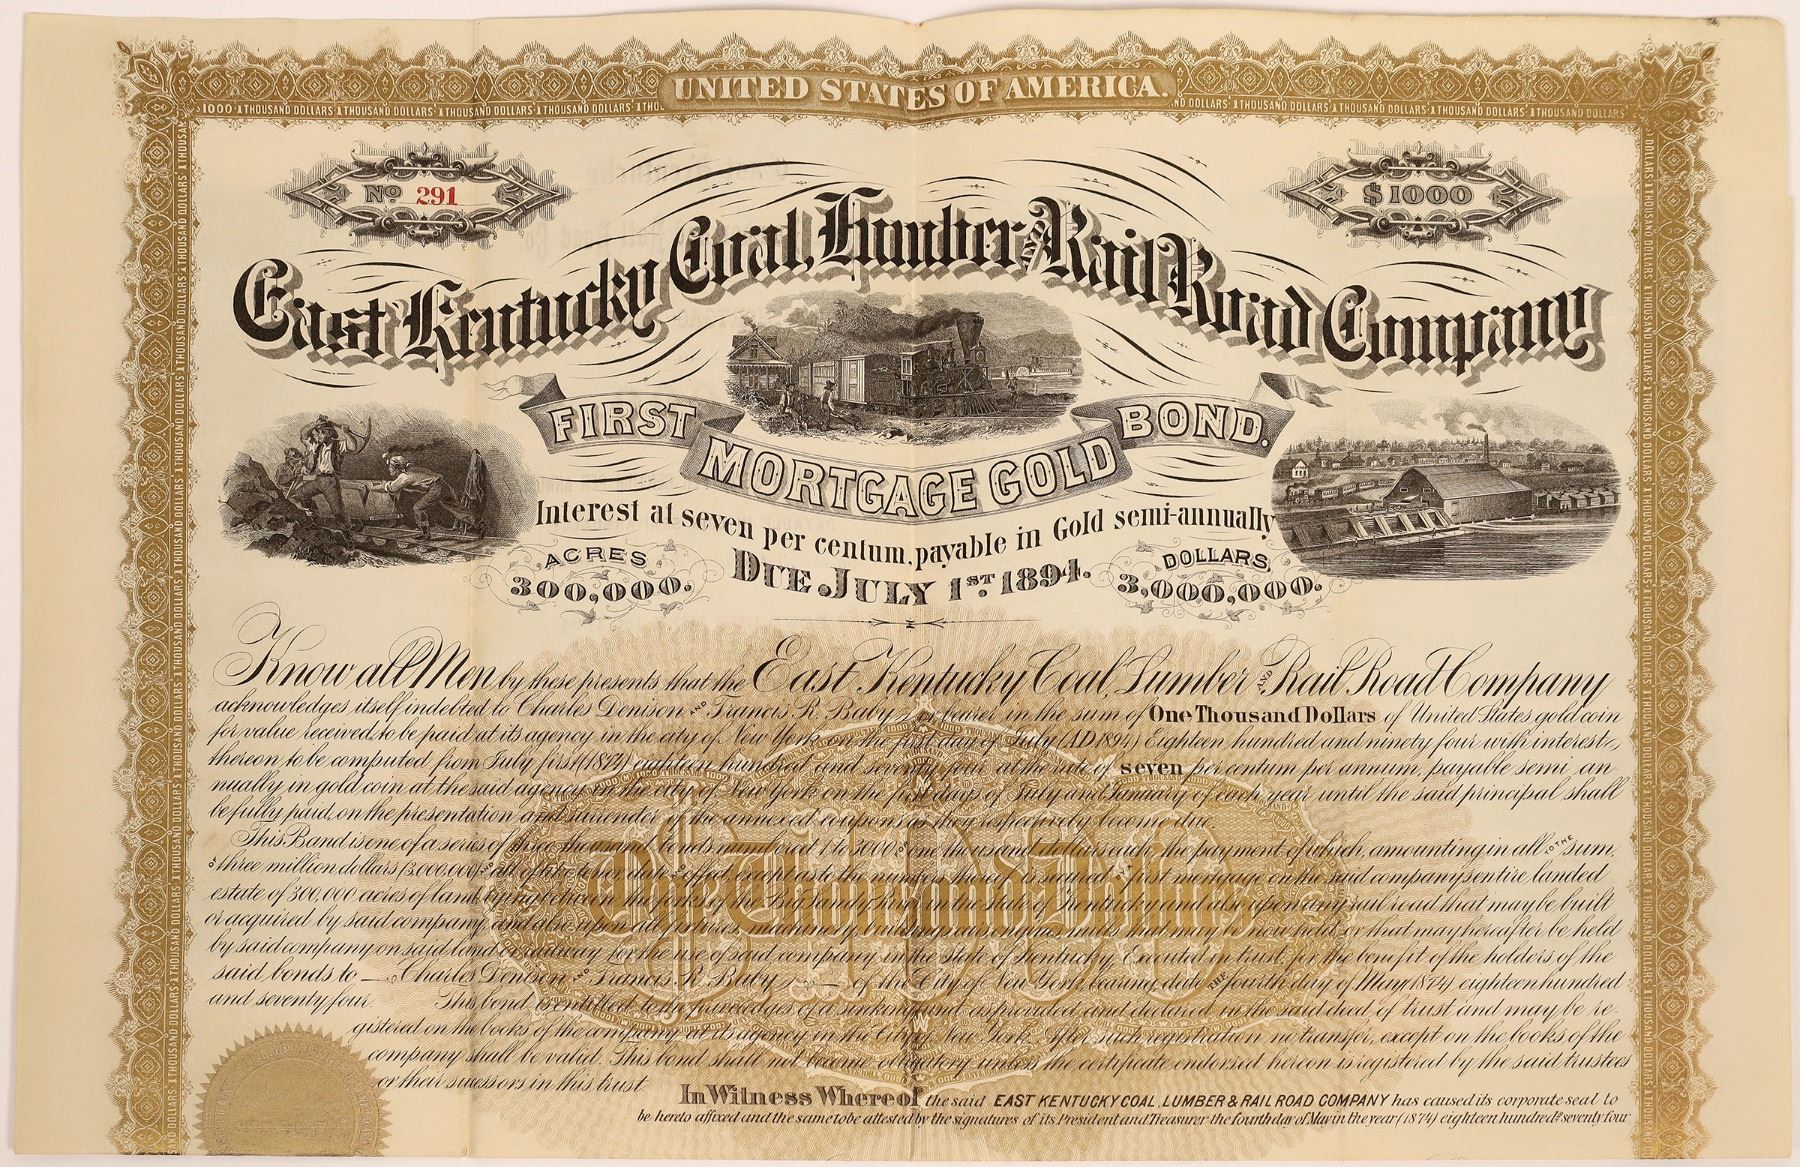 UNITED STATES OF AMERICA.
1000 · 1 THOUSAND DOLLARS · 1 THOUSAND DOLLARS · 1 THOUSAND DOLLARS · 1 THOUSAND DOLLARS
Nº 291
$1000
East Kentucky Coal, Lumber AND Rail Road Company
FIRST MORTGAGE GOLD BOND.
Interest at seven per centum, payable in Gold semi-annually
ACRES 300,000.
DUE JULY 1ST. 1894.
DOLLARS, 3,000,000.
Know all Men by these presents that the East Kentucky Coal, Lumber AND Rail Road Company
acknowledges itself indebted to Charles Denison AND Francis R. Baby or bearer in the sum of One Thousand Dollars of United States gold coin
for value received, to be paid at its agency in the city of New York on the first day of July (AD 1894) Eighteen hundred and ninety four with interest
thereon to be computed from July first (1874) eighteen hundred and seventy four at the rate of seven per centum per annum, payable semi an-
nually in gold coin at the said agency in the city of New York on the first days of July and January of each year until the said principal shall
be fully paid, on the presentation and surrender of the annexed coupons as they respectively become due.
This Bond is one of a series of three thousand bonds numbered 1 to 3000 of one thousand dollars each, the payment of which, amounting in all TO THE sum,
OF three million dollars (3,000,000) all of like tenor date except as to the number is secured first mortgage on the said companys entire landed
estate of 300,000 acres of land, lying between the forks of the Big Sandy River in the State of Kentucky and also upon any rail road that may be built
or acquired by said company, and also upon all fixtures, machinery, buildings mills that may be now held or that may hereafter be held
by said company on said land or railway for the use of said company in the State of Kentucky. Executed in trust, for the benefit of the holders of the
said bonds to — Charles Denison AND Francis R. Baby — of the City of New York, bearing date THE fourth day of May (1874) eighteen hundred
and seventy four. This bond is entitled to the privileges of a sinking fund as provided and declared in the said deed of trust and may be re-
gistered on the books of the company at its agency in the City of New York. After such registration no transfer, except on the books of the
company shall be valid. This bond shall not become obligatory unless the certificate endorsed hereon is registered by the said trustees
or their sucessors in this trust.
In Witness Whereof the said EAST KENTUCKY COAL, LUMBER & RAIL ROAD COMPANY has caused its corporate seal to
be hereto affixed and the same to be attested by the signatures of its President and Treasurer the fourth day of May in the year (1874) eighteen hundred AND seventy four
One Thousand Dollars